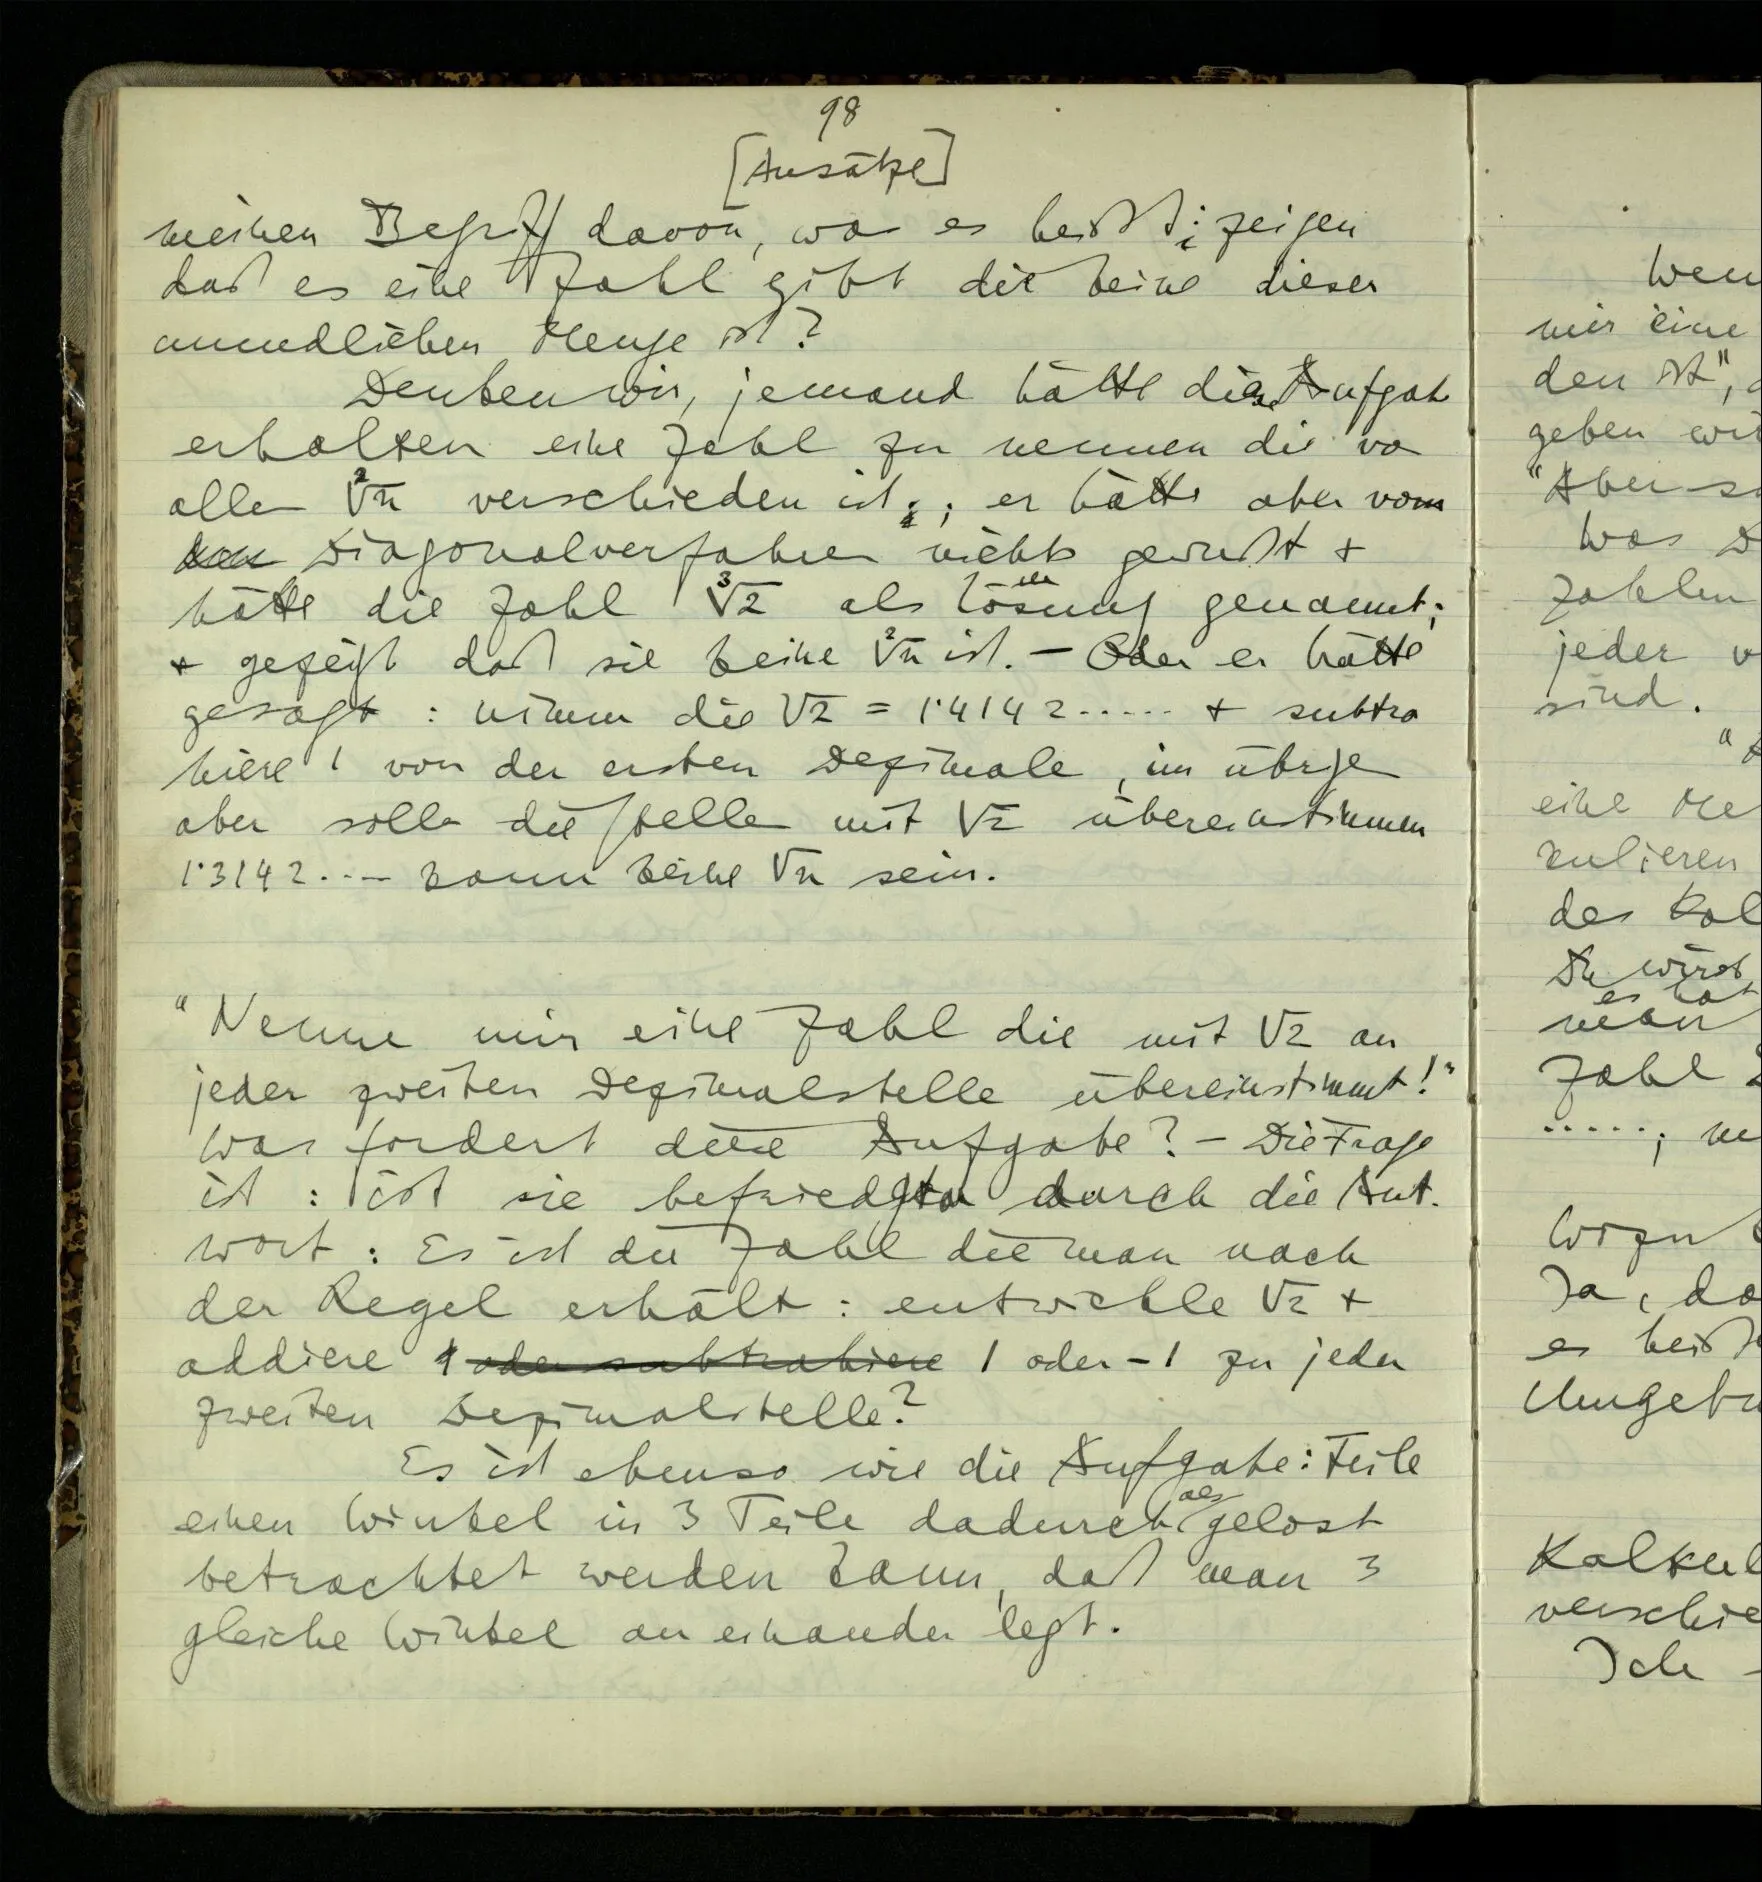 98
[Ansätze]
meinen Begriff davon, was es heißt; zeigen
daß es eine Zahl gibt die keine dieser
unendlichen Menge ist?
Denken wir, jemand hätte die Aufgabe
erhalten eine Zahl zu nennen die von
allen ²√n verschieden ist; er hätte aber vom
Diagonalverfahren nichts gewußt +
hätte die Zahl ³√2 als Lösung genannt;
+ gezeigt daß sie keine ²√n ist. – Oder er hätte
gesagt: nimm die √2 = 1·4142..... + subtra
hiere 1 von der ersten Dezimale, im übrigen
aber sollen die Stellen mit √2 übereinstimmen
1·3142.... kann keine √n sein.
"Nenne mir eine Zahl die mit √2 an
jeder zweiten Dezimalstelle übereinstimmt!"
Was fordert diese Aufgabe? – Die Frage
ist: ist sie befriedigt durch die Ant-
wort: Es ist die Zahl die man nach
der Regel erhält: entwickle √2 +
addiere 1 oder subtrahiere 1 oder -1 zu jeder
zweiten Dezimalstelle?
Es ist ebenso wie die Aufgabe: Teile
einen Winkel in 3 Teile dadurch als gelöst
betrachtet werden kann, daß man 3
gleiche Winkel an einander legt.
Wen
mir eine
den ist",
geben wi
"Aber so
Was D
Zahlen
jeder v
sind.
eine Me
kulieren
des Kal
Du wirst
es hat
man
Zahl
.....; ne
Wozu
Ja, da
es heißt
Umgebu
Kalkul
verschie
Ich –